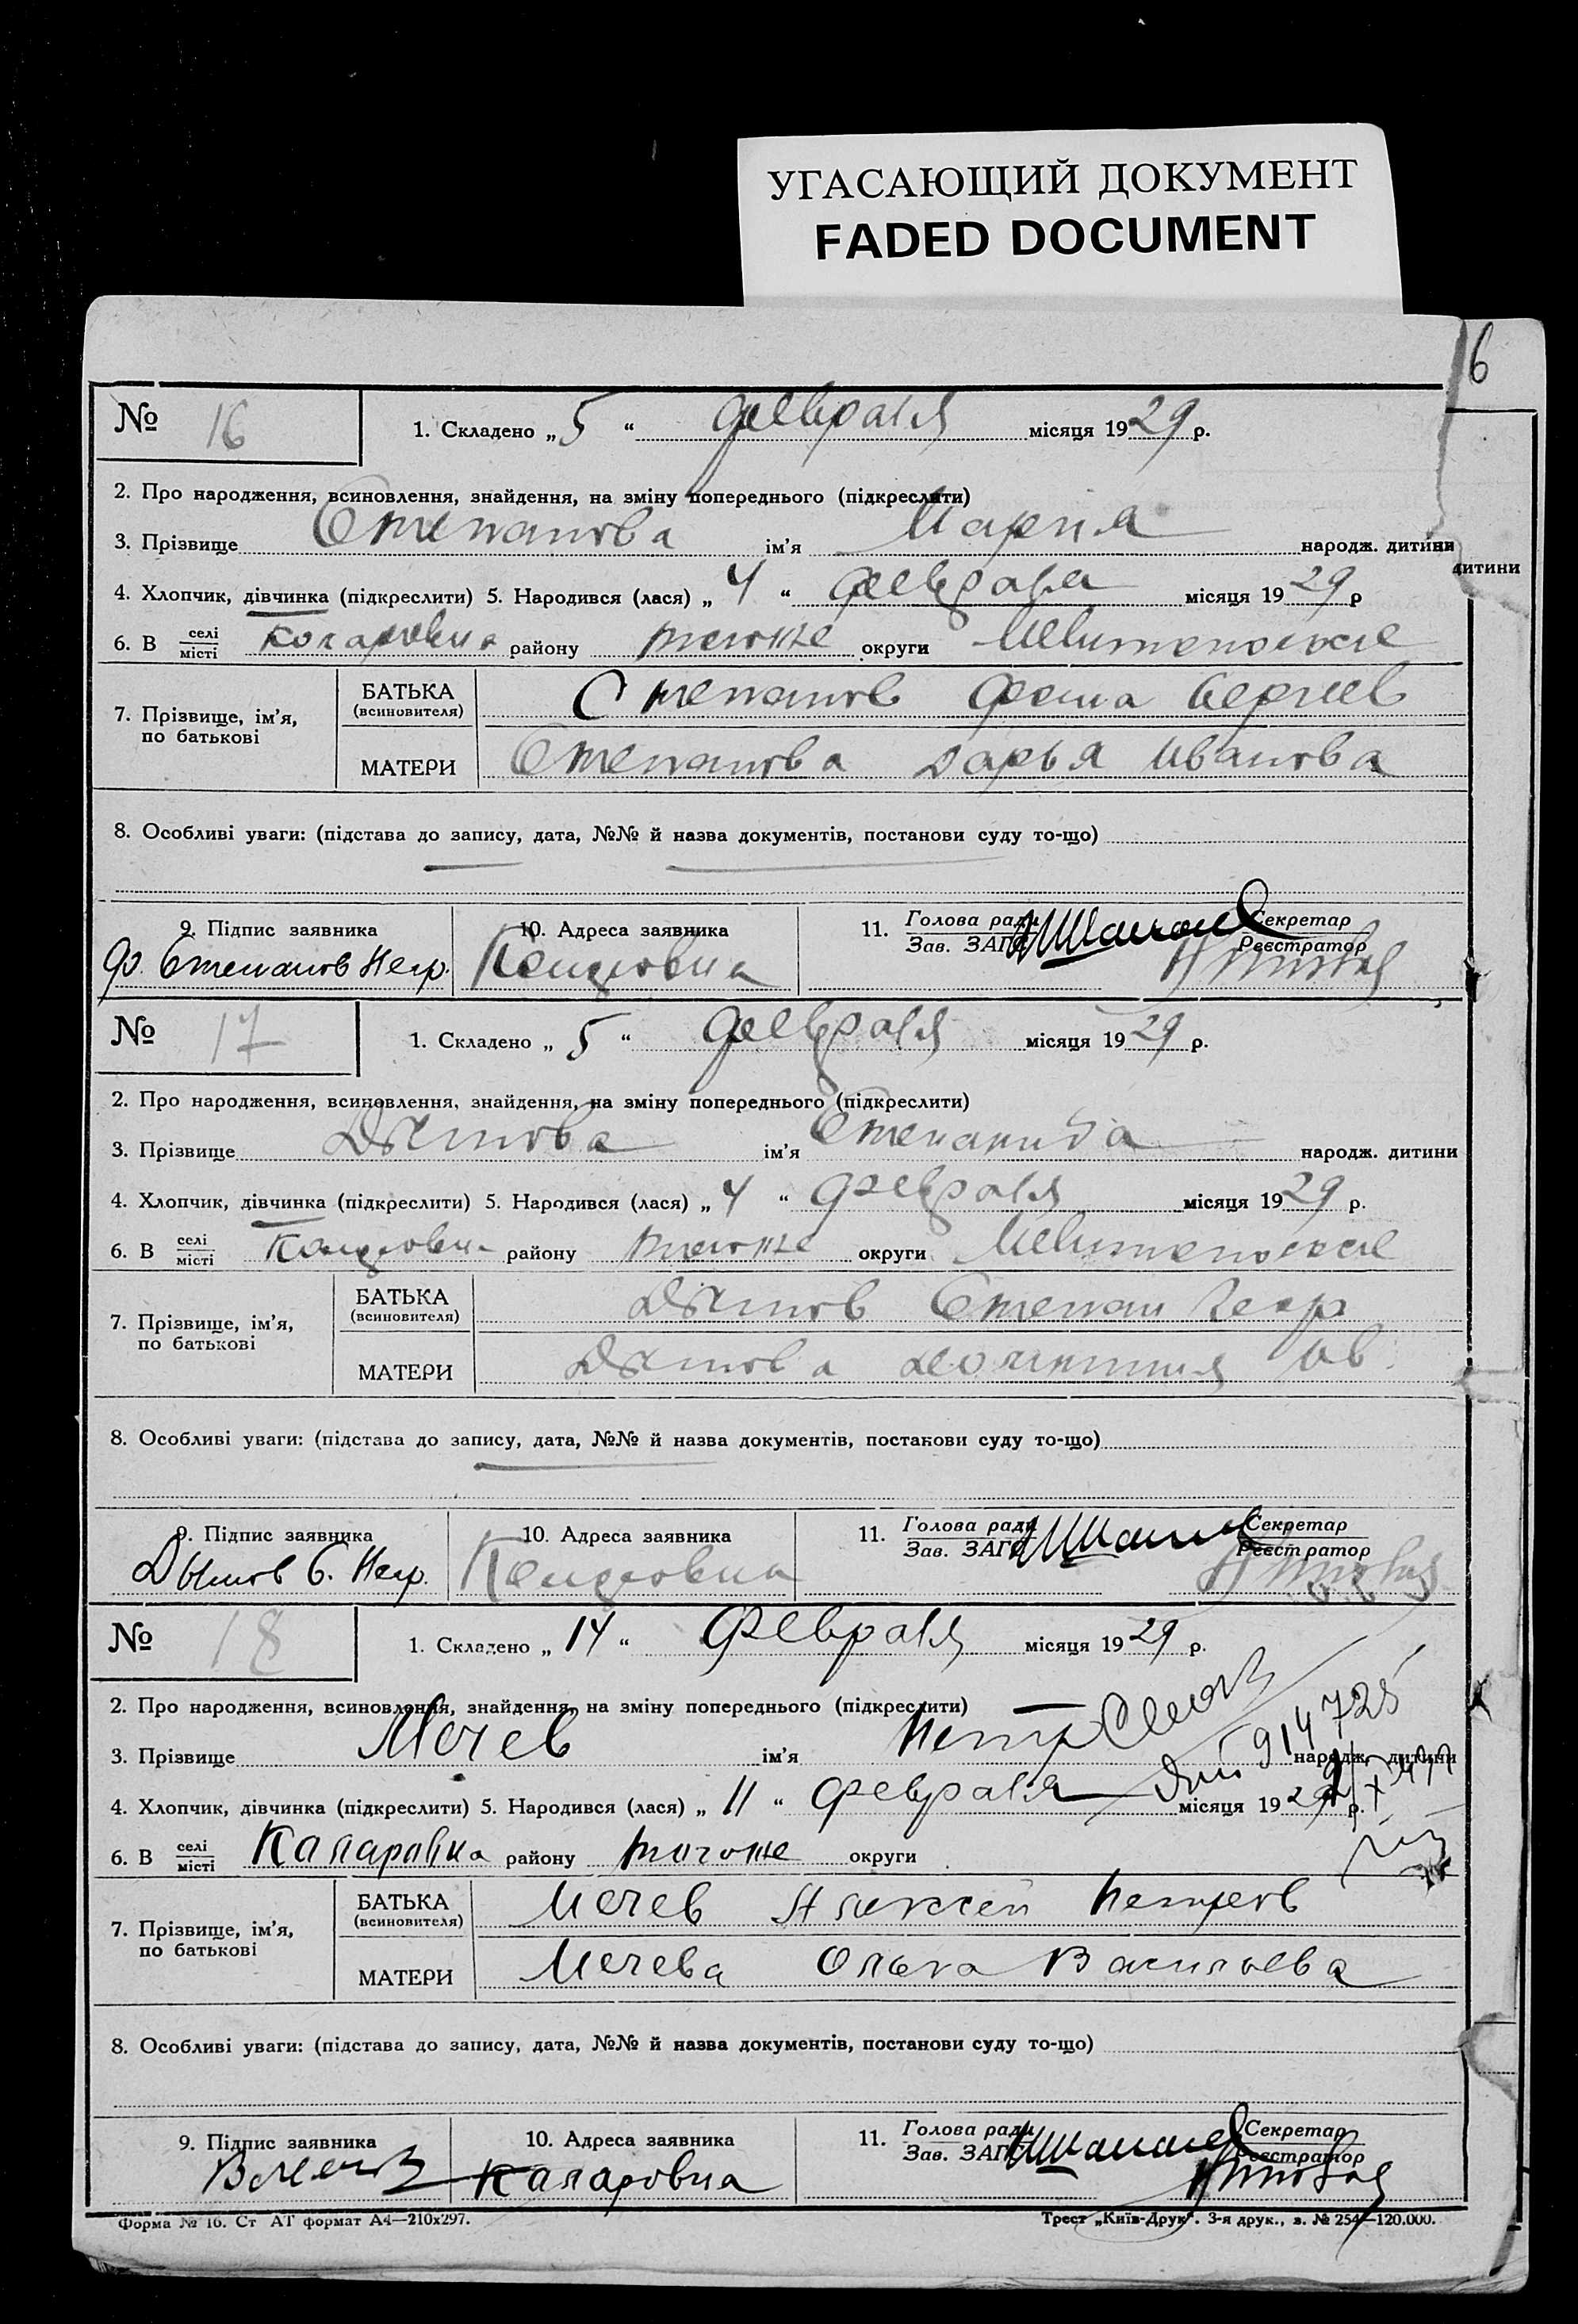 УГАСАЮЩИЙ ДОКУМЕНТ
FADED DOCUMENT
6
№ 16 1. Складено „5“ февраля місяця 1929 р.
2. Про народження, всиновлення, знайдення, на зміну попереднього (підкреслити)
3. Прізвище Степанова ім'я Мария народж. дитини
дитини
4. Хлопчик, дівчинка (підкреслити) 5. Народився (лася) „4“ февраля місяця 1929 р
6. В селі/місті району округи
БАТЬКА (всиновителя) Степанов Фома Сергеев
7. Прізвище, ім'я, по батькові
МАТЕРИ Степанова Дарья Иванова
8. Особливі уваги: (підстава до запису, дата, №№ й назва документів, постанови суду то-що)
9. Підпис заявника 10. Адреса заявника 11. Голова ради/Зав. ЗАГС Секретар/Реєстратор
Ф. Степанов Негр.
№ 17 1. Складено „5“ февраля місяця 1929 р.
2. Про народження, всиновлення, знайдення, на зміну попереднього (підкреслити)
3. Прізвище Дымова ім'я Степанида народж. дитини
4. Хлопчик, дівчинка (підкреслити) 5. Народився (лася) „4“ февраля місяця 1929 р.
6. В селі/місті району округи
БАТЬКА (всиновителя) Дымов Степан
7. Прізвище, ім'я, по батькові
МАТЕРИ Дымова Ив.
8. Особливі уваги: (підстава до запису, дата, №№ й назва документів, постанови суду то-що)
9. Підпис заявника 10. Адреса заявника 11. Голова ради/Зав. ЗАГС Секретар/Реєстратор
Дымов С. Негр.
№ 18 1. Складено „14“ февраля місяця 1929 р.
2. Про народження, всиновлення, знайдення, на зміну попереднього (підкреслити)
3. Прізвище Мечев ім'я Петр народж. дитини
4. Хлопчик, дівчинка (підкреслити) 5. Народився (лася) „11“ февраля місяця 1929 р.
6. В селі/місті Каларовка району округи
БАТЬКА (всиновителя) Мечев Алексей Петров
7. Прізвище, ім'я, по батькові
МАТЕРИ Мечева Ольга Васильева
8. Особливі уваги: (підстава до запису, дата, №№ й назва документів, постанови суду то-що)
9. Підпис заявника 10. Адреса заявника 11. Голова ради/Зав. ЗАГС Секретар/Реєстратор
Каларовка
Форма № 16. Ст АТ формат А4—210x297. Трест „Київ-Друк“. 3-я друк., з. № 254—120.000.